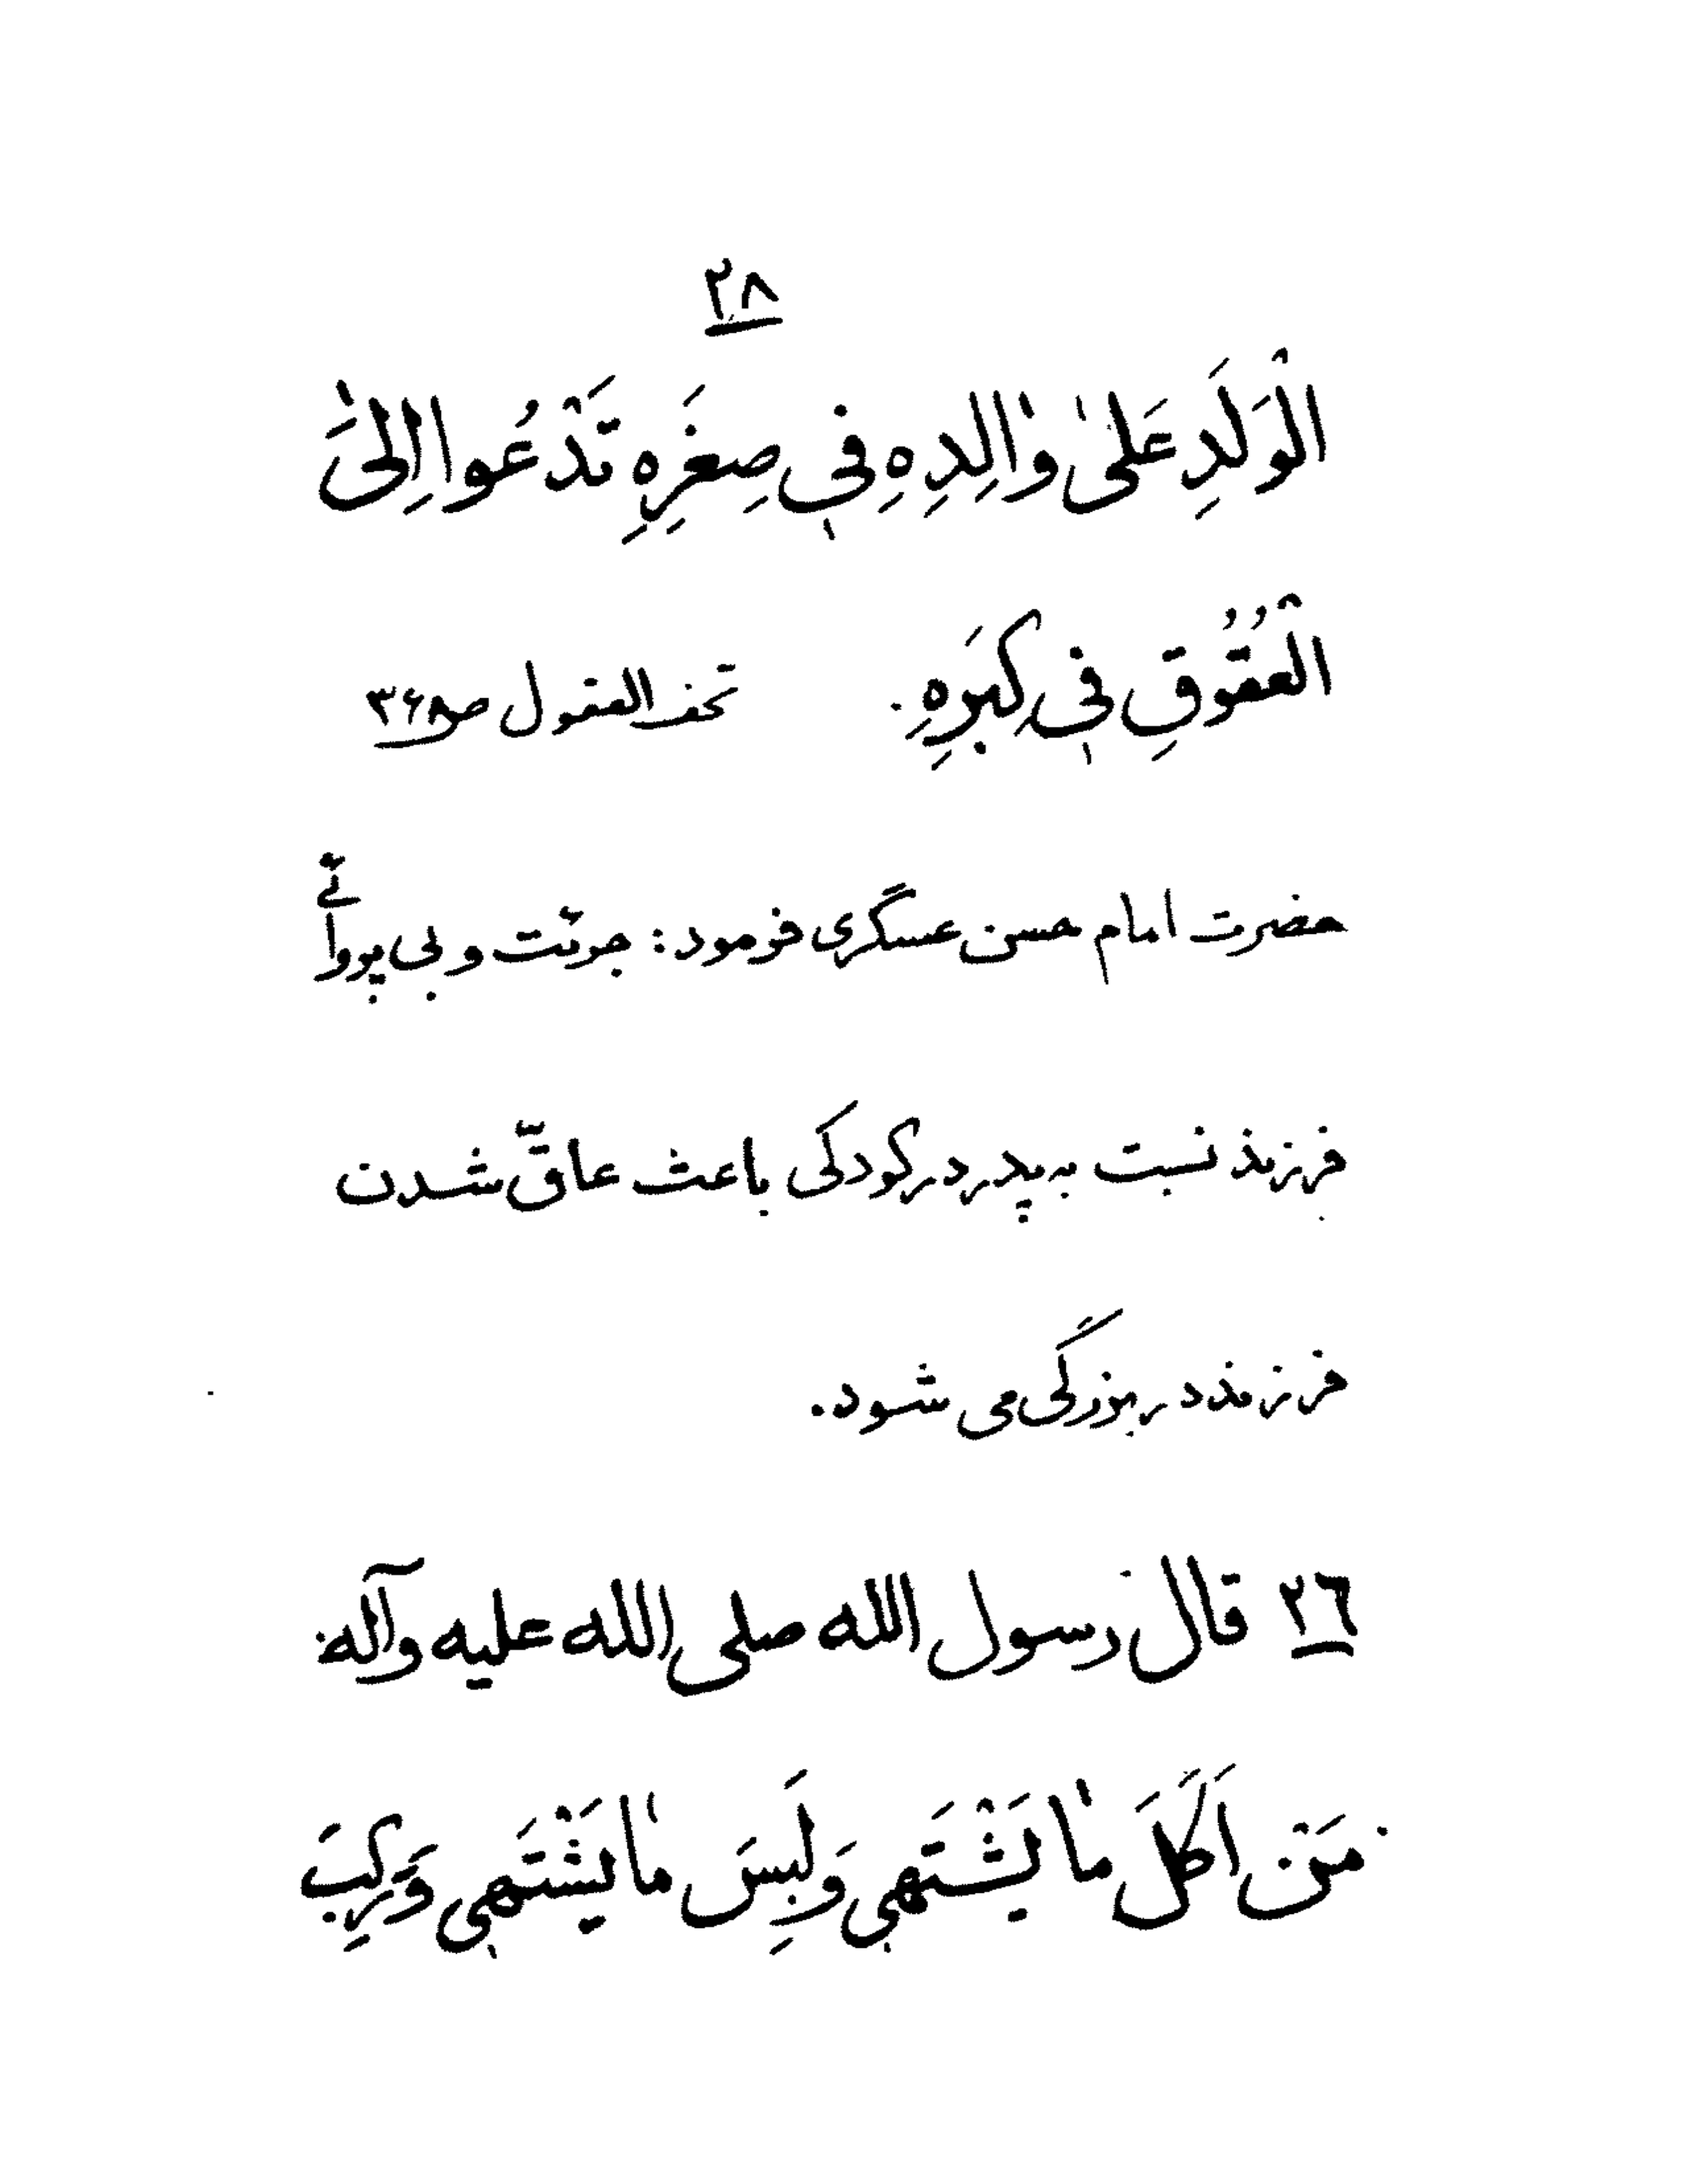 ۲۸
الْوَلَدِ عَلىٰ وٰالِدِهِ فِي صِغَرِهِ تَدْعُوا اِلَى
الْعُقُوقِ فِي كِبَرِهِ. تحف العقول ص۳۶۸
حضرت امام حسن عسگری فرمود: جرئت و بی پروائی
فرزند نسبت به پدر در کودکی باعث عاقّ شدن
فرزند در بزرگی می شود.
۲٦ قال رسول الله صلی الله علیه وآله:
مَنْ اَكَلَ مٰا يَشْتَهِي وَلَبِسَ مٰا يَشْتَهِي وَرَكِبَ